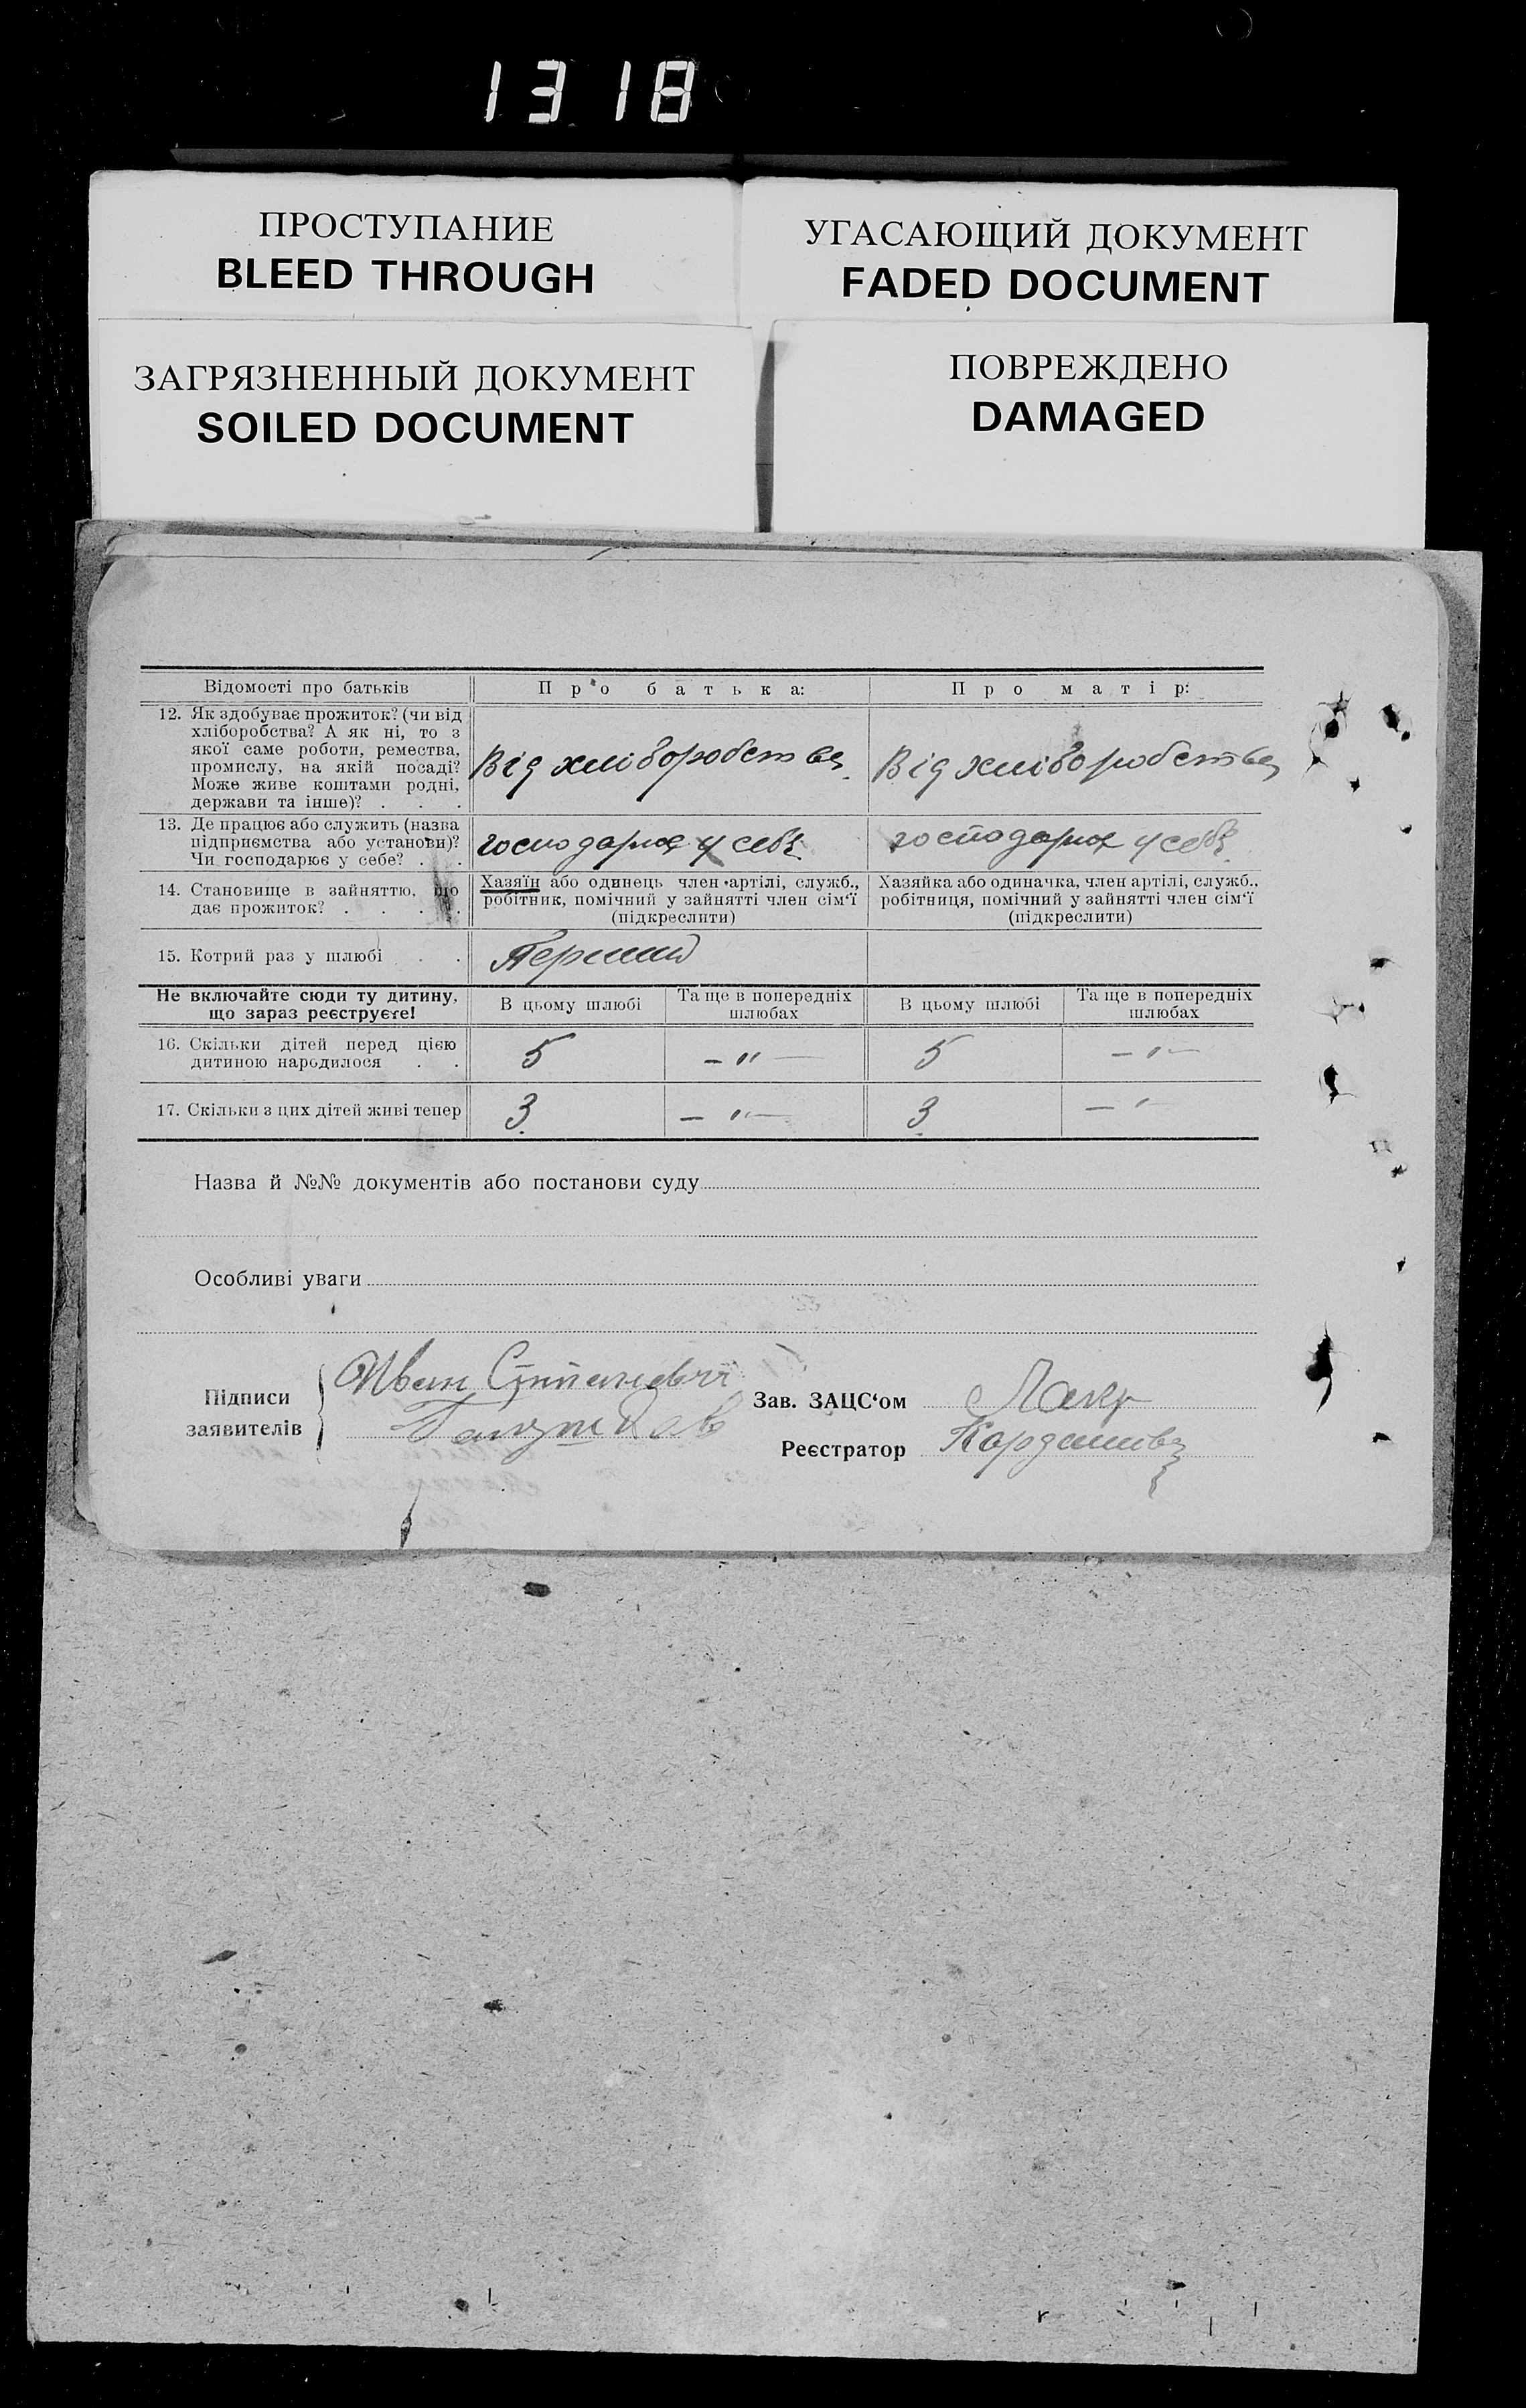 1318
ПРОСТУПАНИЕ
BLEED THROUGH
УГАСАЮЩИЙ ДОКУМЕНТ
FADED DOCUMENT
ЗАГРЯЗНЕННЫЙ ДОКУМЕНТ
SOILED DOCUMENT
ПОВРЕЖДЕНО
DAMAGED
Відомості про батьків
Про батька:
Про матір:
12. Як здобуває прожиток? (чи від
хліборобства? А як ні, то з
якої саме роботи, ремества,
промислу, на якій посаді?
Може живе коштами родні,
держави та інше)? . . .
Від хліборобства
Від хліборобства
13. Де працює або служить (назва
підприємства або установи)?
Чи господарює у себе? . .
господарює у себе
господарює у себе
14. Становище в зайняттю, що
дає прожиток? . . . .
Хазяїн або одинець член артілі, служб.,
робітник, помічний у зайнятті член сім‘ї
(підкреслити)
Хазяйка або одиначка, член артілі, служб.,
робітниця, помічний у зайнятті член сім‘ї
(підкреслити)
15. Котрий раз у шлюбі . . .
Перший
Не включайте сюди ту дитину,
що зараз реєструєте!
В цьому шлюбі
Та ще в попередніх
шлюбах
В цьому шлюбі
Та ще в попередніх
шлюбах
16. Скільки дітей перед цією
дитиною народилося . .
5
— " —
5
— " —
17. Скільки з цих дітей живі тепер
3
— " —
3
— " —
Назва й №№ документів або постанови суду
Особливі уваги
Підписи
заявителів
Иван
Зав. ЗАЦС‘ом
Реєстратор